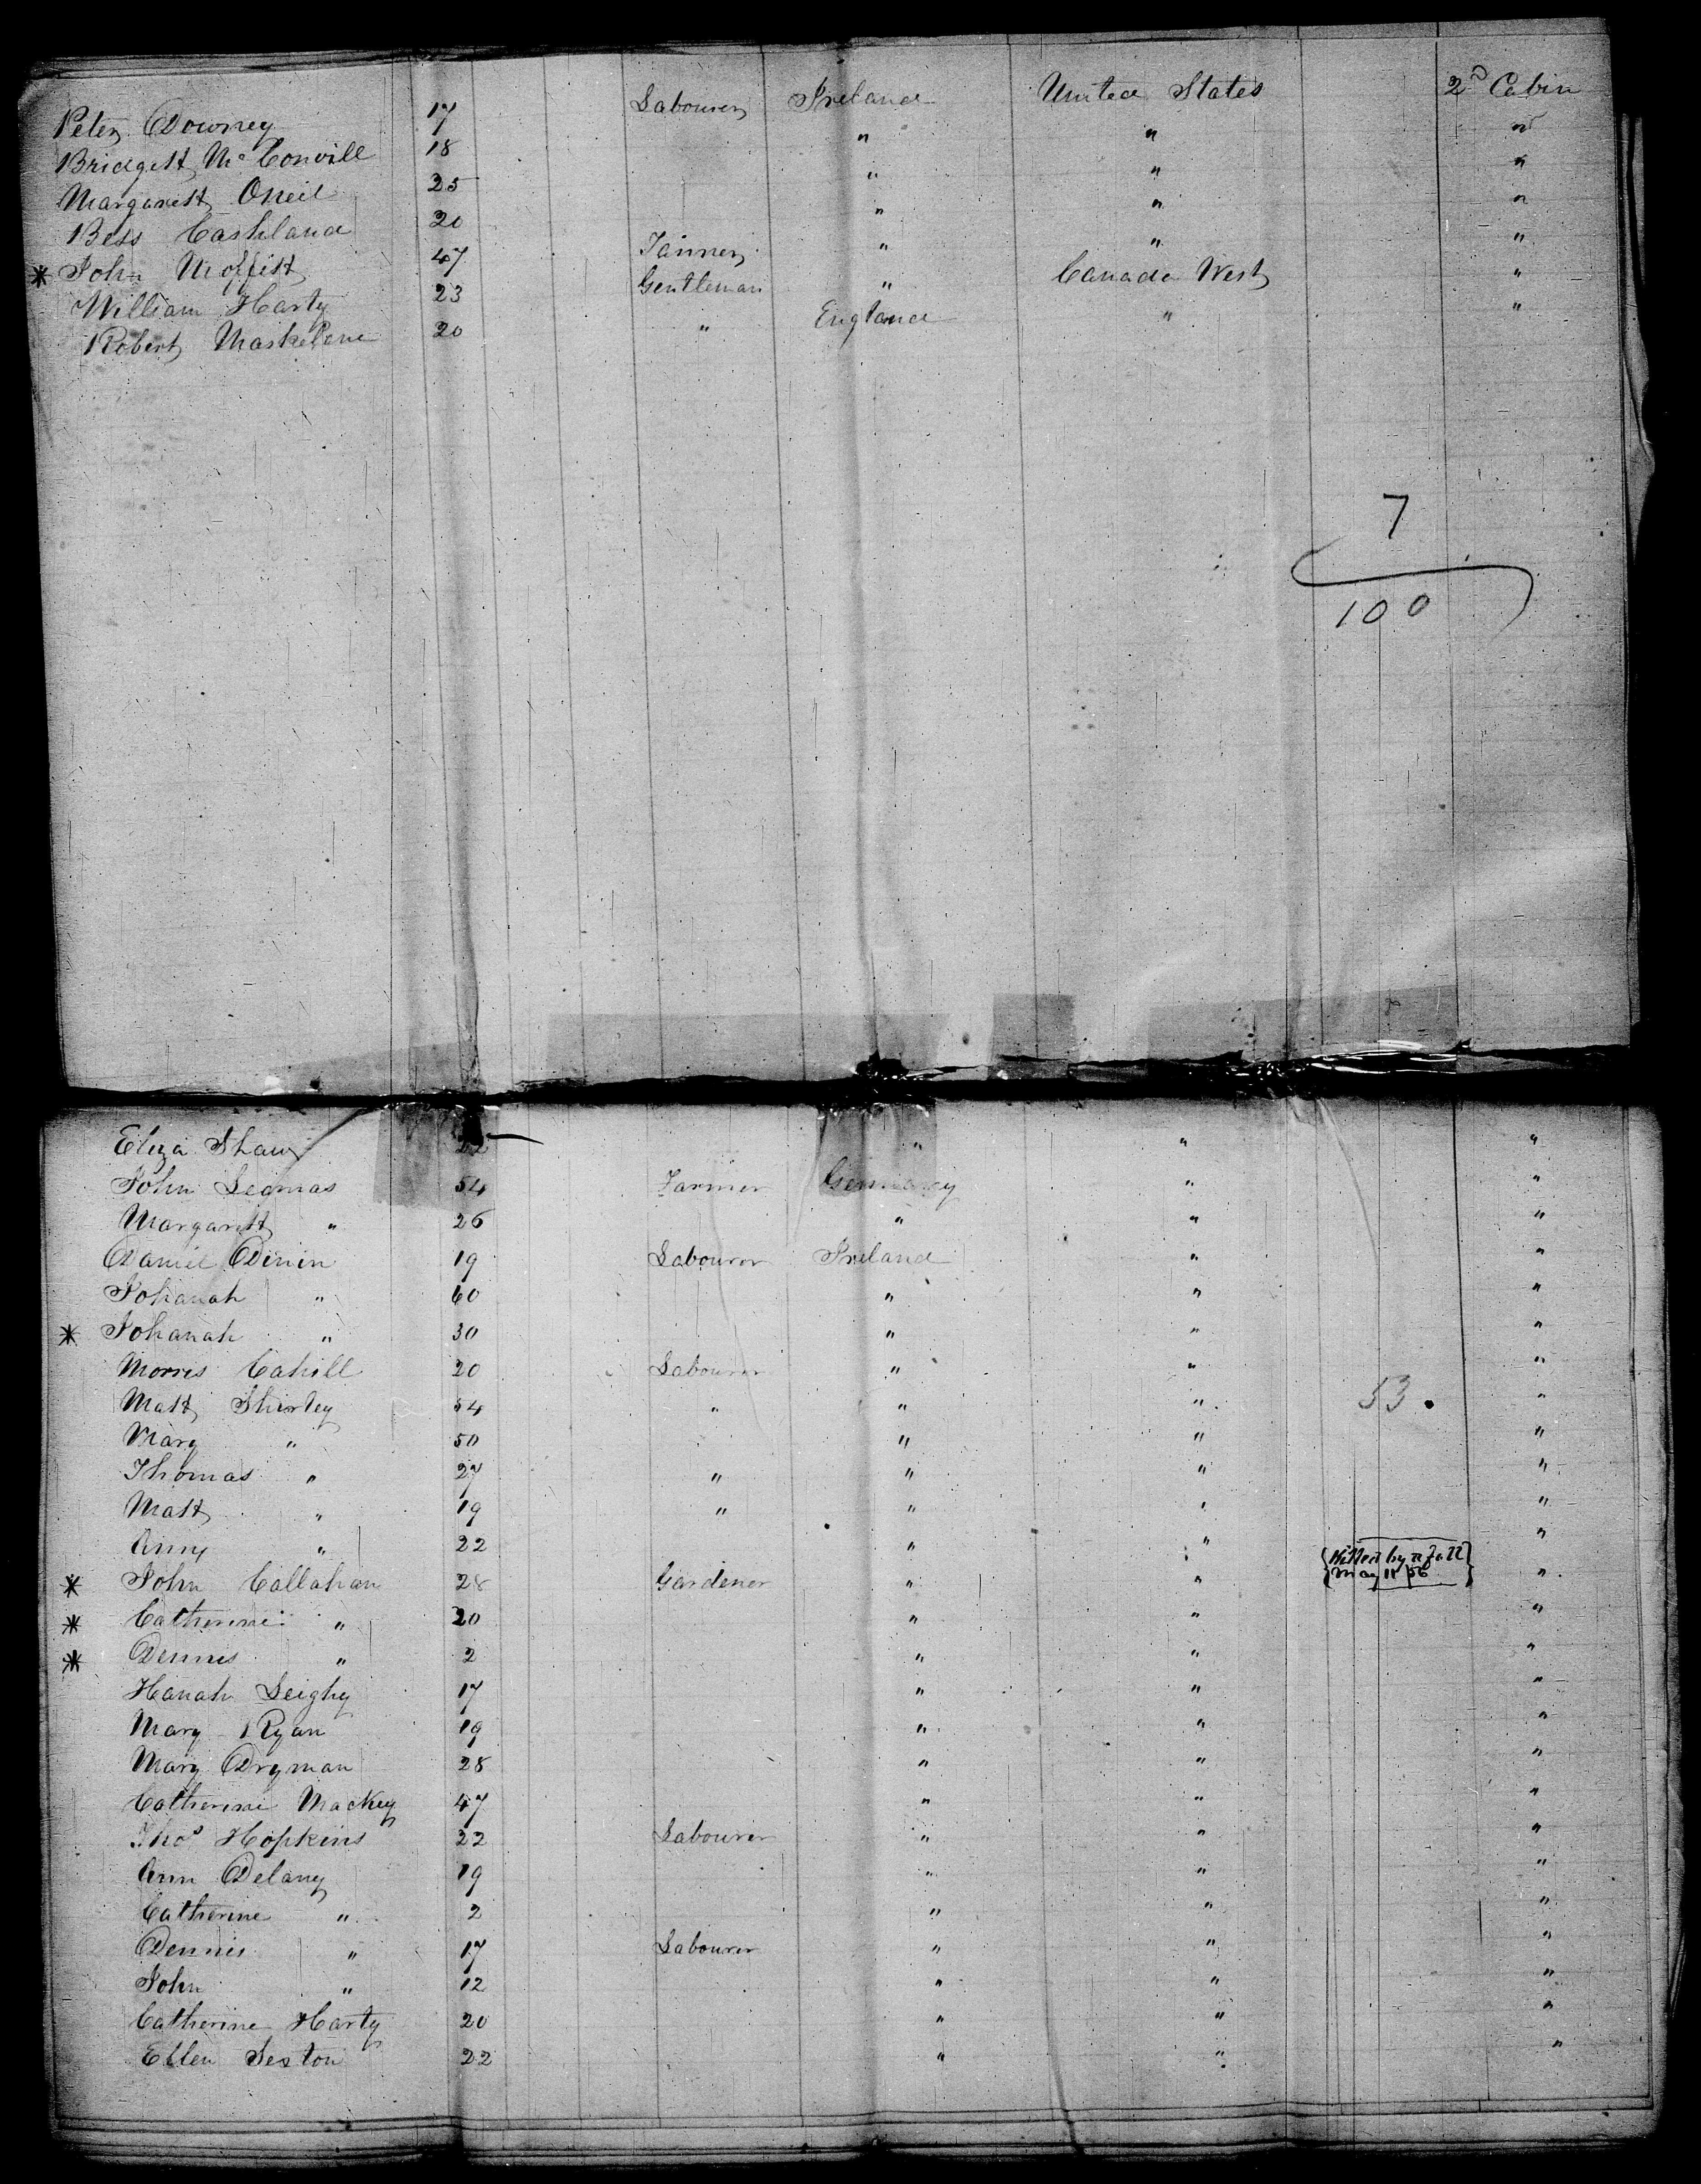 Peter Downey 17 Labourer Ireland United States 2D Cabin
Bridgett McConvill 18 " " "
Margarett ONeil 25 " " "
Bess Cashland 20 " " "
* John Moffitt 47 Farmer " " "
William Harty 23 Gentleman " Canada West "
Robert Maskelene 20 " England " "
7
100
Eliza Shaw 22 " " "
John Legmas 54 Farmer Germany " "
Margarett " 26 " " "
Daniel Dinin 19 Labourer Ireland " "
Johanah " 60 " " "
* Johanah " 30 " " "
Morris Cahill 20 Labourer " " "
Matt Shirley 54 " " " 53. "
Mary " 50 " " "
Thomas " 27 " " " "
Matt " 19 " " " "
Anny " 22 " " "
* John Callahan 28 Gardener " " {Killed by a fall May 11 56} "
* Catherine " 20 " " "
* Dennis " 2 " " "
Hanah Leighy 17 " " "
Mary Ryan 19 " " "
Mary Dryman 28 " " "
Catherine Mackey 47 " " "
Thos Hopkins 22 Labourer " " "
Ann Delany 19 " " "
Catherine " 2 " " "
Dennis " 17 Labourer " " "
John " 12 " " "
Catherine Harty 20 " " "
Ellen Sexton 22 " " "